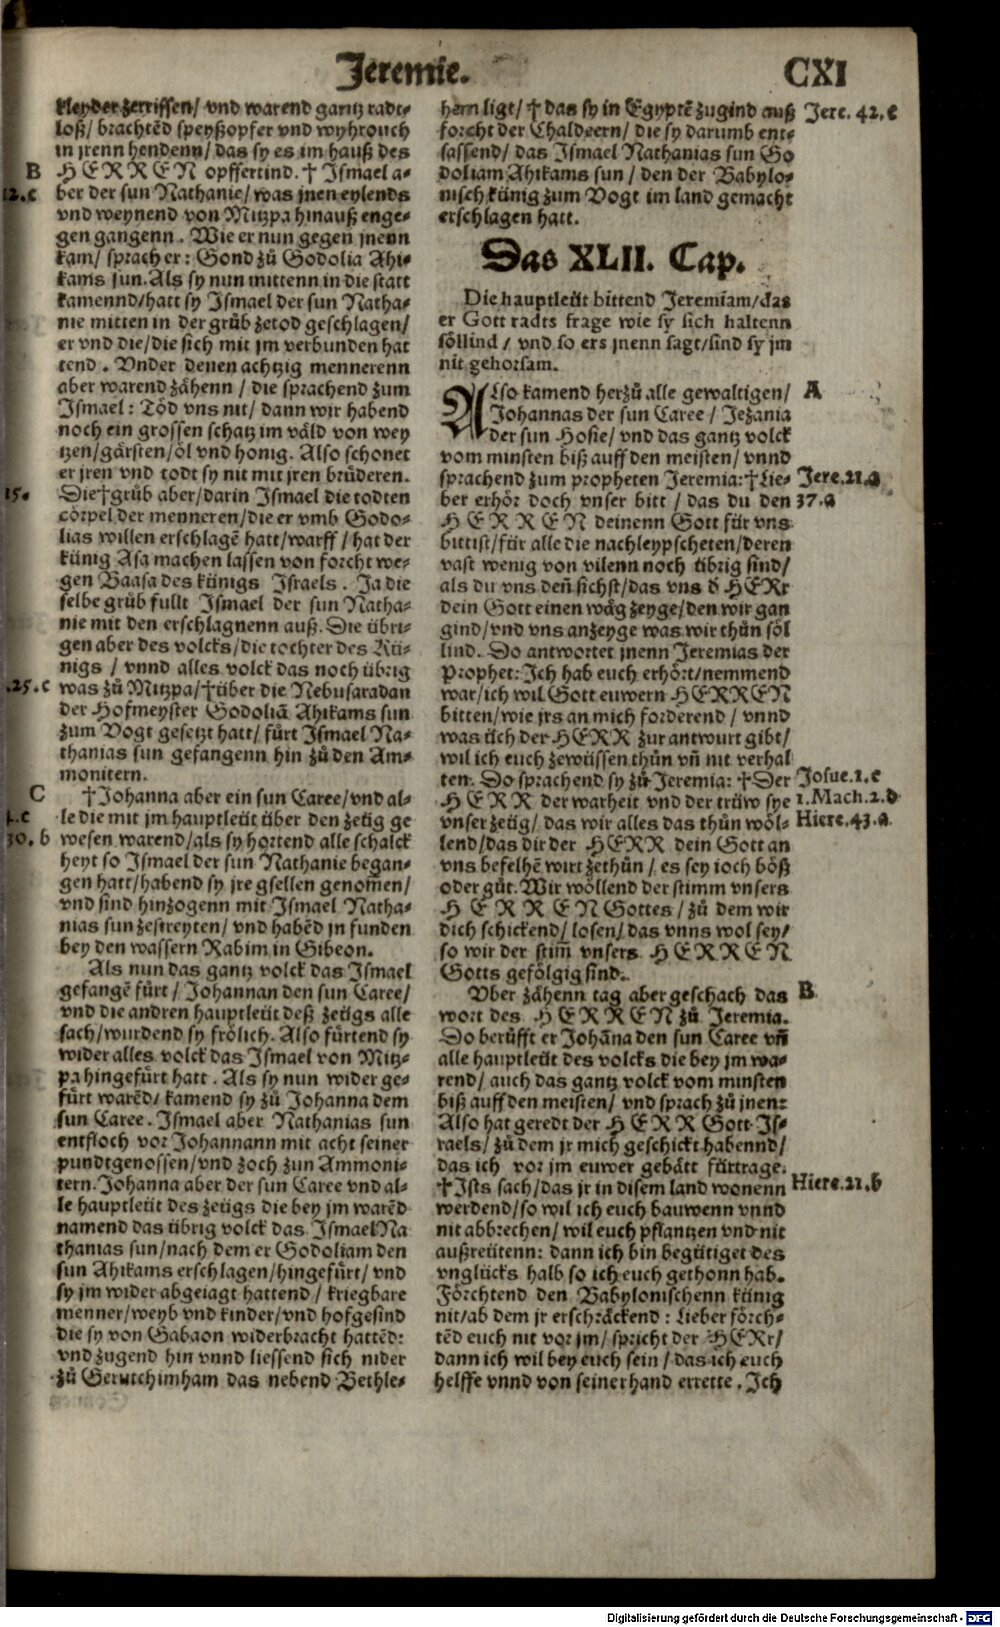 Jeremie.
CXI
kleyder zerrissen/ vnd warend gantz radt-
loß/ brachtēd speyßopfer vnd wyhrouch
in jrenn hendenn/ das sy es im hauß des
B
HERREN opffertind. † Ismael a-
12.c
ber der sun Nathanie/ was jnen eylends
vnd weynend von Mitzpa hinauß enge-
gen gangenn. Wie er nun gegen jnenn
kam/ sprach er: Gond zů Godolia Ahi-
kams sun. Als sy nun mittenn in die statt
kamennd/ hatt sy Ismael der sun Natha-
nie mitten in der grůb zetod geschlagen/
er vnd die/ die sich mit jm verbunden hat
tend. Vnder denen achtzig mennerenn
aber warend zähenn/ die sprachend zum
Ismael: Töd vns nit/ dann wir habend
noch ein grossen schatz im väld von wey
tzen/ gärsten/ öl vnd honig. Also schonet
er jren vnd todt sy nit mit jren brůderen.
15.
Die†grůb aber/ darin Ismael die todten
cörpel der menneren/ die er vmb Godo-
lias willen erschlagē hatt/ warff/ hat der
künig Asa machen lassen von forcht we-
gen Baasa des künigs Israels. Ja die
selbe grůb fullt Ismael der sun Natha-
nie mit den erschlagnenn auß. Die übri-
gen aber des volcks/ die tochter des Kü-
nigs/ vnnd alles volck das noch übrig
.25.c
was zů Mitzpa/ †über die Nebusaradan
der Hofmeyster Godoliā Ahikams sun
zum Vogt gesetzt hatt/ fürt Ismael Na-
thanias sun gefangenn hin zů den Am-
monitern.
C
†Johanna aber ein sun Caree/ vnd al-
le die mit jm hauptleüt über den zeüg ge
30.b
wesen warend/ als sy hortend alle schalck
heyt so Ismael der sun Nathanie began-
gen hatt/ habend sy jre gsellen genom̄en/
vnd sind hinzogenn mit Ismael Natha-
nias sun zestreyten/ vnd habēd jn funden
bey den wassern Rabim in Gibeon.
Als nun das gantz volck das Ismael
gefangē fürt/ Johannan den sun Caree/
vnd die andren hauptleüt deß zeügs alle
sach/ wurdend sy frölich. Also fürtend sy
wider alles volck das Ismael von Mitz-
pa hingefürt hatt. Als sy nun wider ge-
fürt warēd/ kamend sy zů Johanna dem
sun Caree. Ismael aber Nathanias sun
entfloch vor Johannann mit acht seiner
pundtgenossen/ vnd zoch zun Ammoni-
tern. Johanna aber der sun Caree vnd al-
le hauptleüt des zeügs die bey jm warēd
namend das übrig volck das Ismael Na
thanias sun/ nach dem er Godoliam den
sun Ahikams erschlagen/ hingefürt/ vnd
sy jm wider abgeiagt hattend/ kriegbare
menner/ weyb vnd kinder/ vnd hofgesind
die sy von Gabaon widerbracht hattēd:
vnd zugend hin vnnd liessend sich nider
zů Gerutchimham das nebend Bethle-
hem ligt/ † das sy in Egyptē zugind auß
Jere. 42.c
forcht der Chaldeern/ die sy darumb ent-
sassend/ das Ismael Nathanias sun Go
doliam Ahikams sun/ den der Babylo-
nisch künig zum Vogt im land gemacht
erschlagen hatt.
Das XLII. Cap.
Die hauptleüt bittend Jeremiam/ das
er Gott radts frage wie sy sich haltenn
söllind/ vnd so ers jnenn sagt/ sind sy jm
nit gehorsam.
A
ALso kamend herzů alle gewaltigen/
Johannas der sun Caree/ Jezania
der sun Hosie/ vnd das gantz volck
vom minsten biß auff den meisten/ vnnd
sprachend zum propheten Jeremia: †Lie-
Jere.21.a
ber erhör doch vnser bitt/ das du den
37.a
HERREN deinenn Gott für vns
bittist/ für alle die nachleypscheten/ deren
vast wenig von vilenn noch übrig sind/
als du vns den̄ sichst/ das vns d̄ HERr
dein Gott einen wäg zeyge/ den wir gan
gind/ vnd vns anzeyge was wir thůn söl
lind. Do antwortet jnenn Jeremias der
Prophet: Ich hab euch erhört/ nemmend
war/ ich wil Gott euwern HERREN
bitten/ wie jrs an mich forderend/ vnnd
was üch der HERR zur antwurt gibt/
wil ich euch zewüssen thůn vn̄ nit verhal
ten. Do sprachend sy zů Jeremia: †Der
Josue.1.c
HERR der warheit vnd der trüw sye
1.Mach.2.b
vnser zeüg/ das wir alles das thůn wöl-
Hiere.43.a
lend/ das dir der HERR dein Gott an
vns befelhē wirt zethůn/ es sey ioch böß
oder gůt. Wir wöllend der stimm vnsers
HERREN Gottes/ zů dem wir
dich schickend/ losen/ das vnns wol sey/
so wir der stim̄ vnsers HERREN
Gotts gefölgig sind.
B
Vber zähenn tag aber geschach das
wort des HERREN zů Jeremia.
Do berůfft er Johāna den sun Caree vn̄
alle hauptleüt des volcks die bey jm wa-
rend/ auch das gantz volck vom minsten
biß auff den meisten/ vnd sprach zů jnen:
Also hat geredt der HERR Gott Is-
raels/ zů dem jr mich geschickt habennd/
das ich vor jm euwer gebätt fürtrage:
†Ists sach/ das jr in disem land wonenn
Hiere.21.b
werdend/ so wil ich euch bauwenn vnnd
nit abbrechen/ wil euch pflantzen vnd nit
außreütenn: dann ich bin begütiget des
vnglücks halb so ich euch gethonn hab.
Förchtend den Babylonischenn künig
nit/ ab dem jr erschräckend: Lieber förch-
tēd euch nit vor jm/ spricht der HERr/
dann ich wil bey euch sein/ das ich euch
helffe vnnd von seiner hand errette. Ich
Digitalisierung gefördert durch die Deutsche Forschungsgemeinschaft - DFG